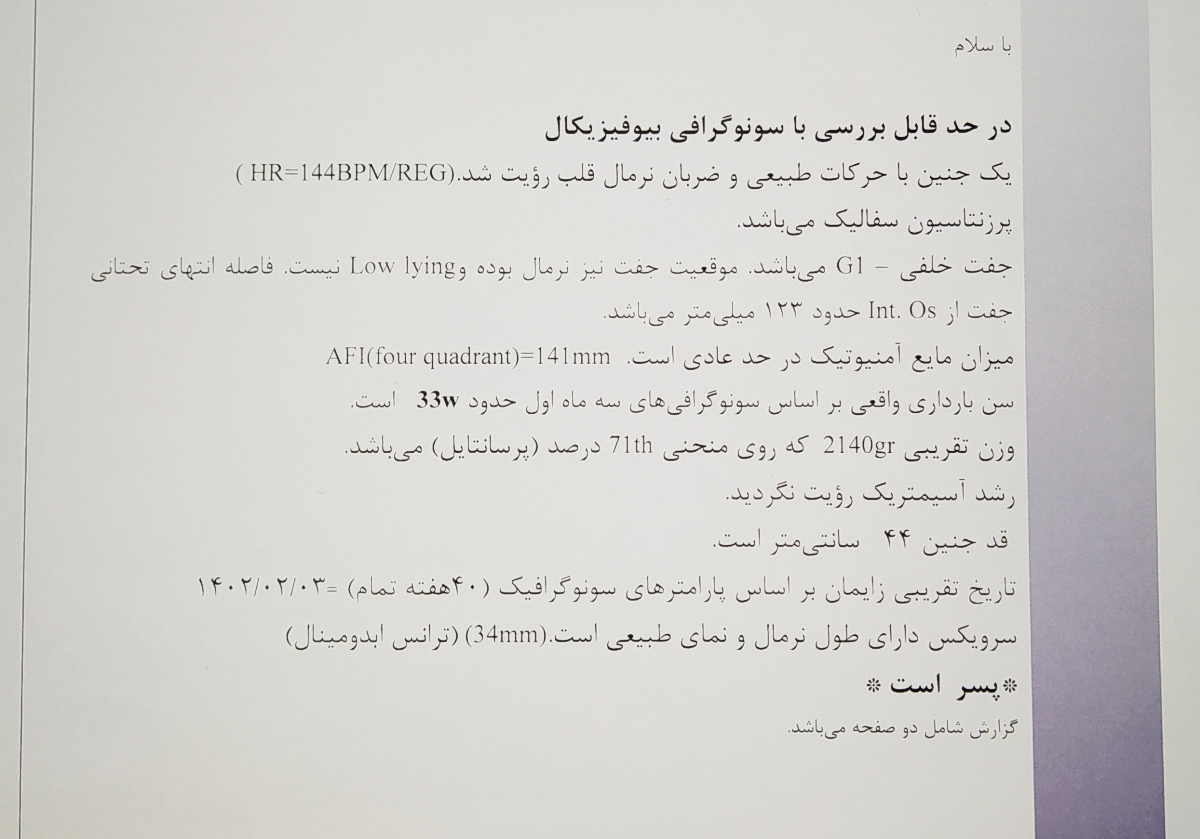 با سلام
در حد قابل بررسی با سونوگرافی بیوفیزیکال
یک جنین با حرکات طبیعی و ضربان نرمال قلب رؤیت شد.(HR=144BPM/REG )
پرزنتاسیون سفالیک می‌باشد.
جفت خلفی – G1 می‌باشد. موقعیت جفت نیز نرمال بوده وLow lying نیست. فاصله انتهای تحتانی
جفت از Int. Os حدود ۱۲۳ میلی‌متر می‌باشد.
میزان مایع آمنیوتیک در حد عادی است. AFI(four quadrant)=141mm
سن بارداری واقعی بر اساس سونوگرافی‌های سه ماه اول حدود 33w است.
وزن تقریبی 2140gr که روی منحنی 71th درصد (پرسانتایل) می‌باشد.
رشد آسیمتریک رؤیت نگردید.
قد جنین ۴۴ سانتی‌متر است.
تاریخ تقریبی زایمان بر اساس پارامترهای سونوگرافیک (۴۰هفته تمام) =۱۴۰۲/۰۲/۰۳
سرویکس دارای طول نرمال و نمای طبیعی است.(34mm) (ترانس ابدومینال)
*پسر است *
گزارش شامل دو صفحه می‌باشد.